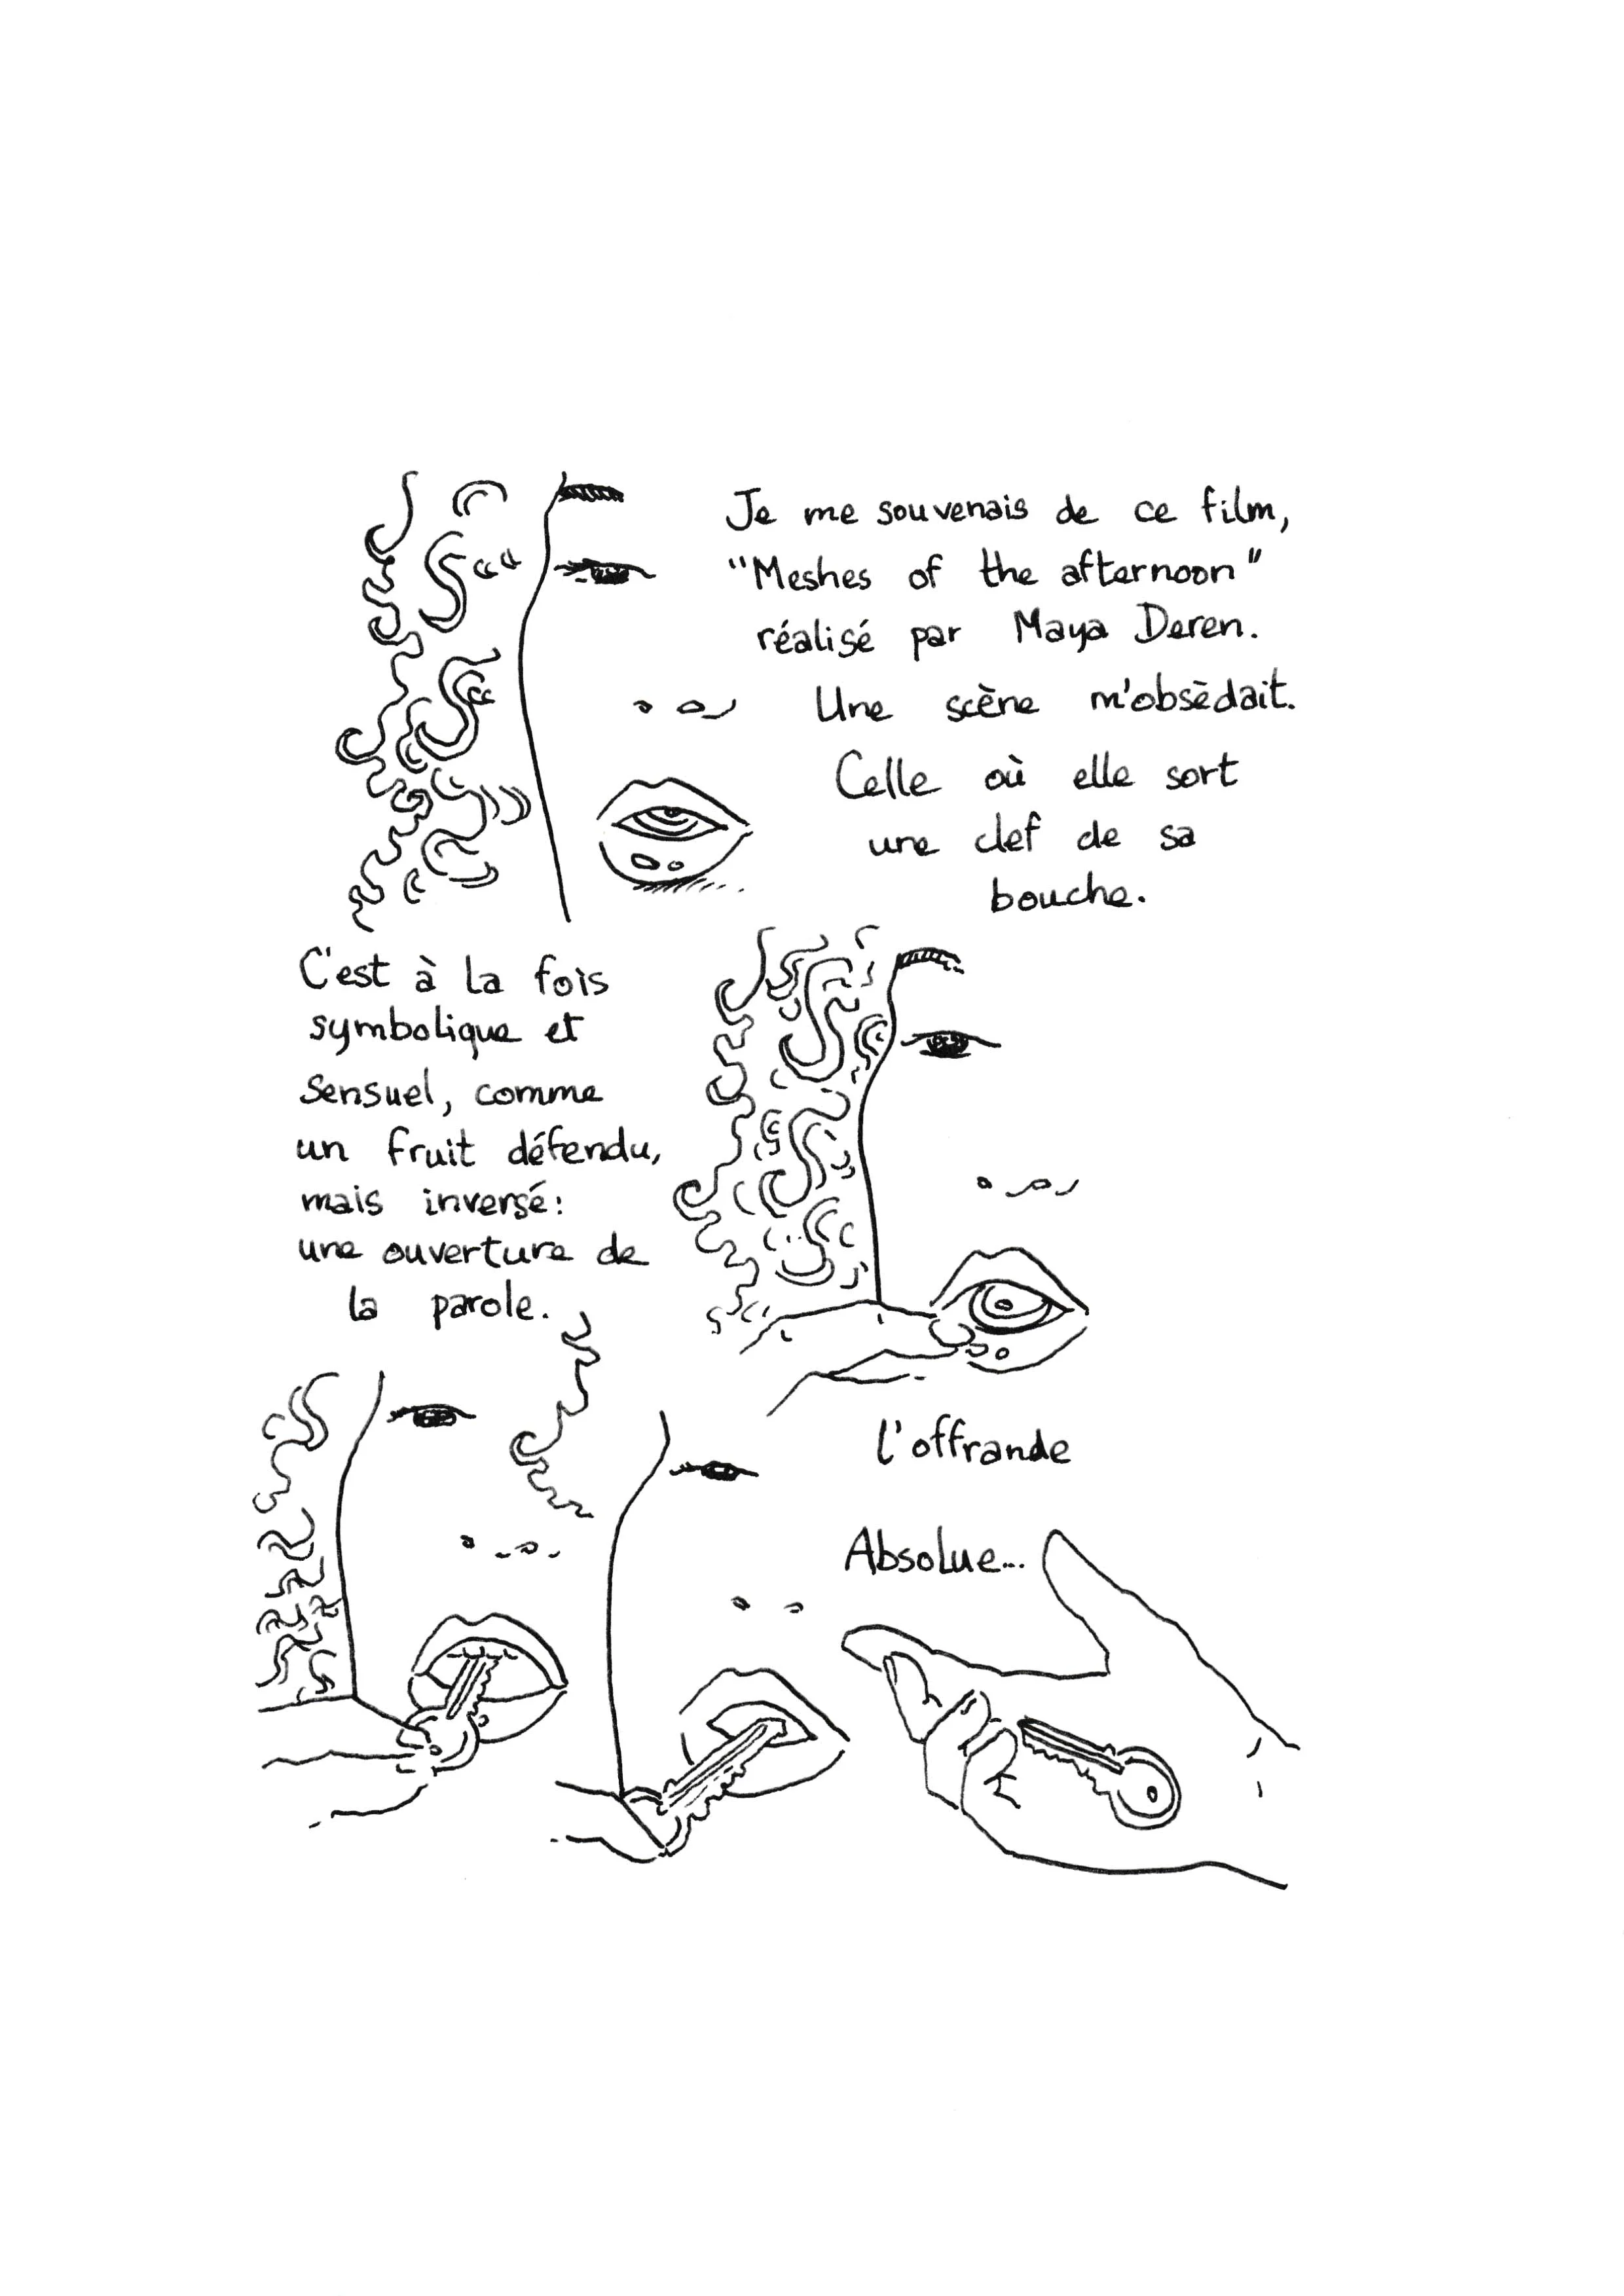 Je me souvenais de ce film,
"Meshes of the afternoon"
réalisé par Maya Deren.
Une scène m'obsèdait.
Celle où elle sort
une clef de sa
bouche.
C'est à la fois
symbolique et
sensuel, comme
un fruit défendu,
mais inversé:
une ouverture de
la parole.
l'offrande
Absolue...